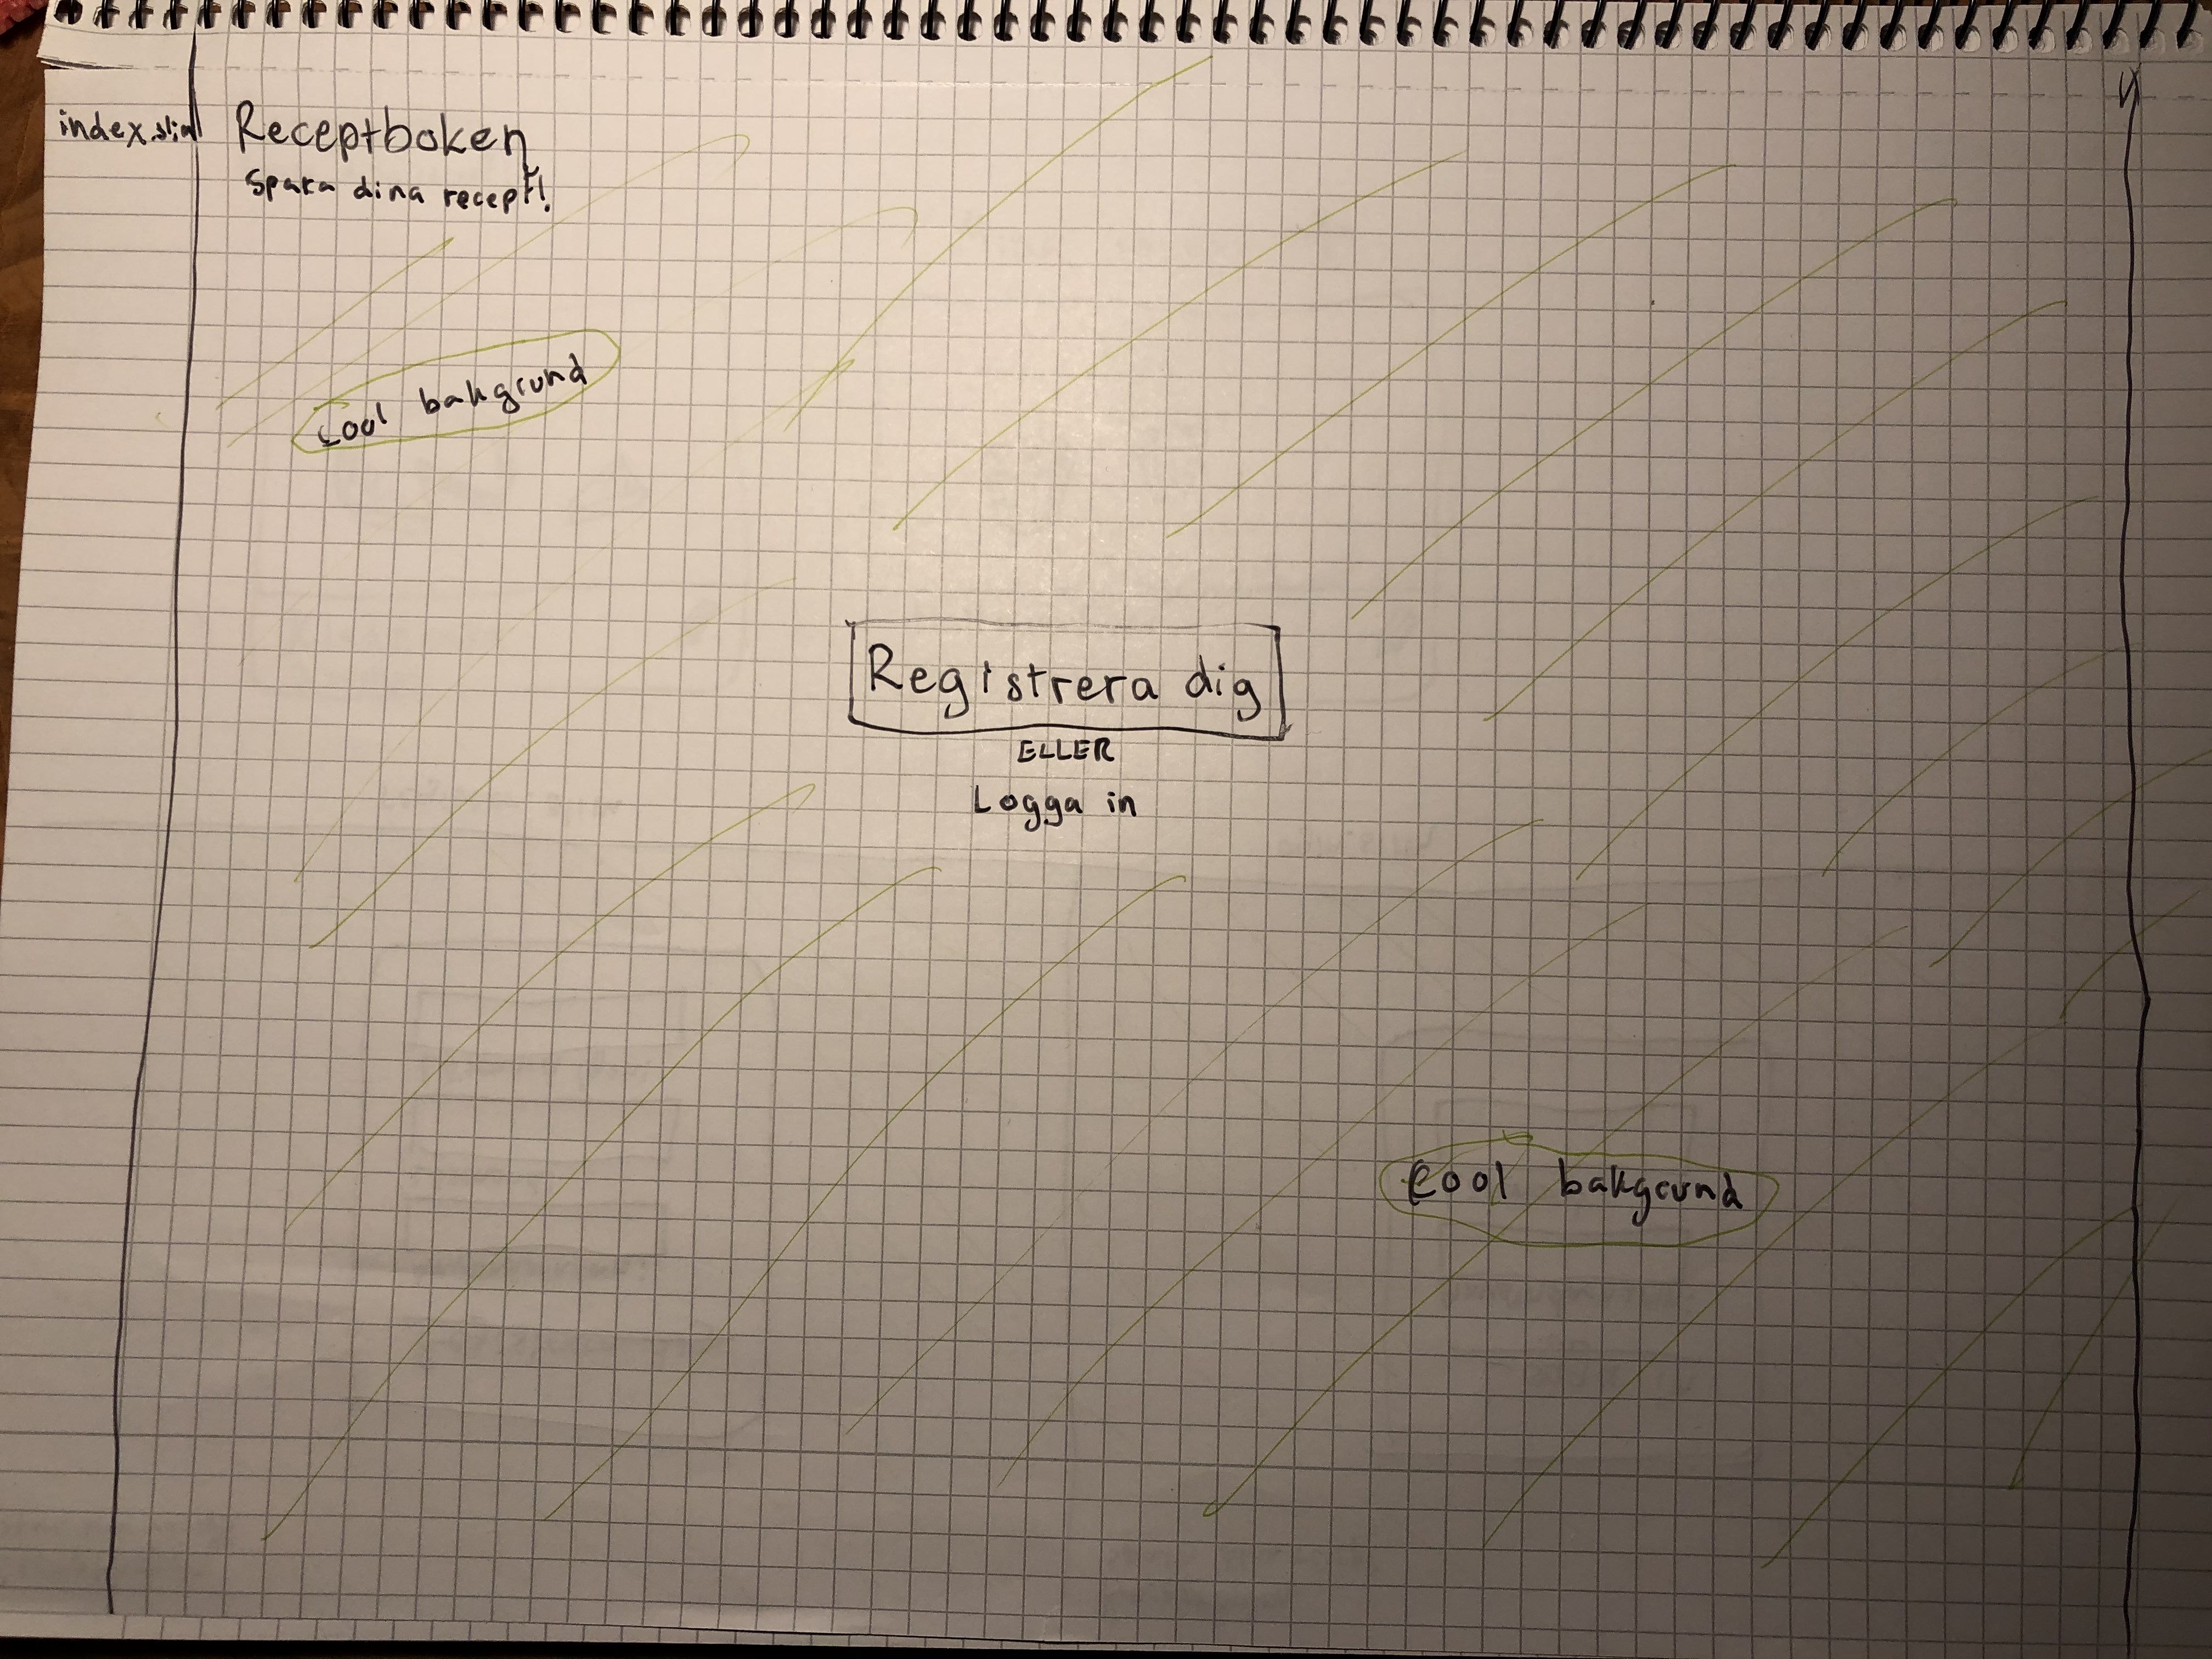 index.slim
Receptboken
Spara dina recept!
Cool bakgrund
Registrera dig
ELLER
Logga in
Cool bakgrund